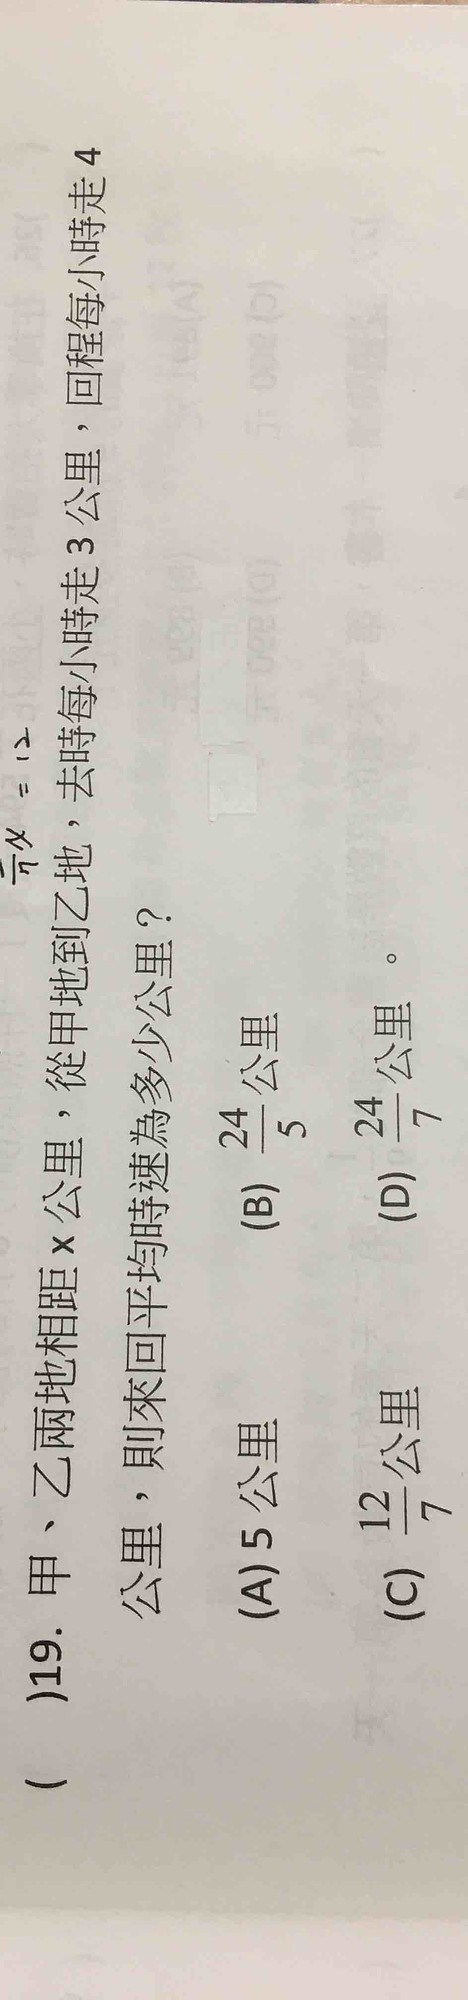 = 12
(    )19. 甲、乙兩地相距 x 公里，從甲地到乙地，去時每小時走 3 公里，回程每小時走 4
公里，則來回平均時速為多少公里？
(A) 5 公里 (B) 24/5 公里
(C) 12/7 公里 (D) 24/7 公里。